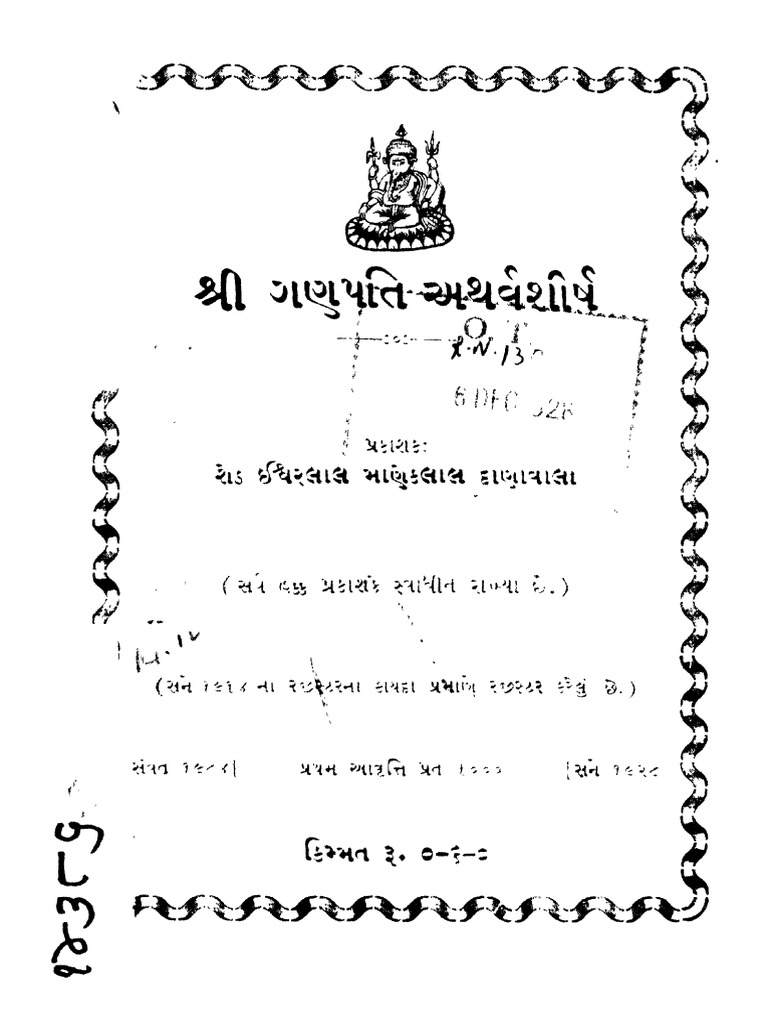 શ્રી ગણપતિ-અથર્વશીર્ષ
6 DEC 1928
પ્રકાશક:
શેઠ ઈશ્વરલાલ માણેકલાલ દાણાવાલા
(સર્વ હક્ક પ્રકાશકે સ્વાધીન રાખ્યા છે.)
(સને ૧૯૧૪ ના રજીસ્ટરના કાયદા પ્રમાણે રજીસ્ટર કરેલું છે.)
સંવત ૧૯૮૪] પ્રથમ આવૃત્તિ પ્રત ૧૦૦૦ [સને ૧૯૨૮
કિમ્મત રૂ. ૦-૬-૦